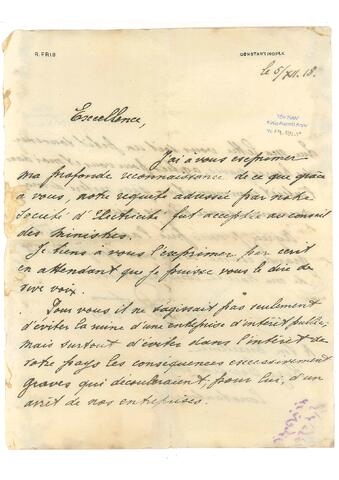 R. FRIB
CONSTANTINOPLE
le 5/XII. 18.
Excellence,
J'ai à vous exprimer
ma profonde reconnaissance de ce que grâce
à vous, notre requête adressée par notre
Société d'Electricité fut acceptée au conseil
des ministres.
Je tiens à vous l'exprimer par écrit
en attendant que je puisse vous le dire de
vive voix.
Pour vous il ne s'agissait pas seulement
d'éviter la ruine d'une entreprise d'intérêt public,
mais surtout d'éviter dans l'intérêt de
votre pays les conséquences excessivement
graves qui découleraient, pour lui, d'un
arrêt de nos entreprises.